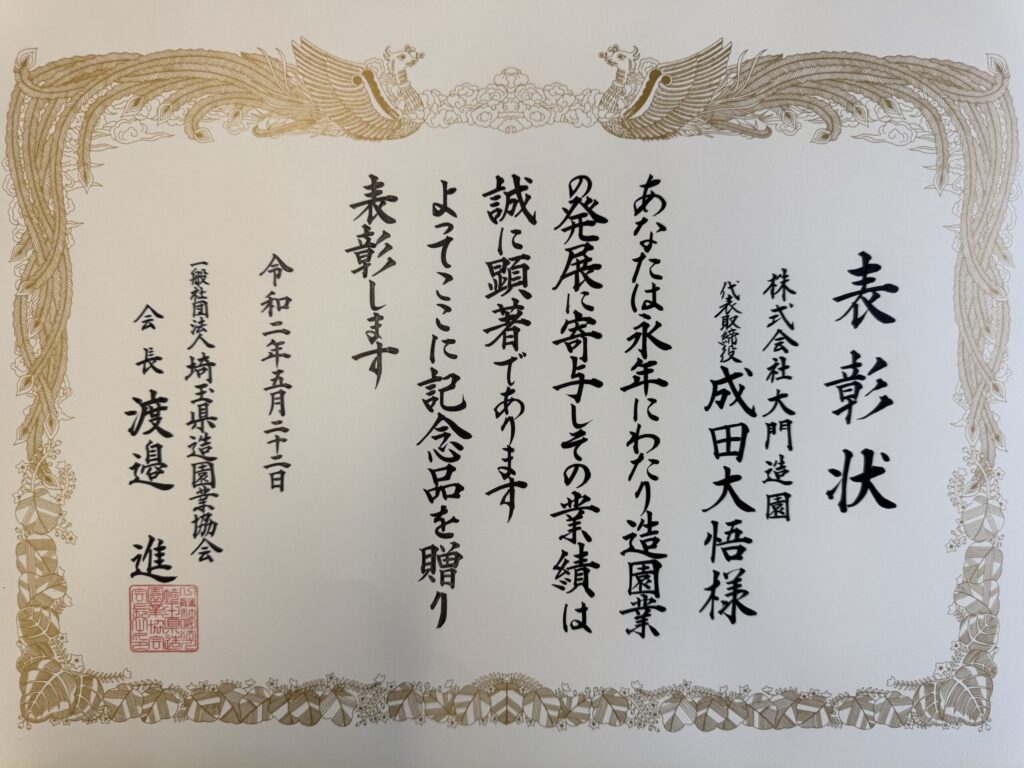 表彰状
株式会社大門造園
代表取締役 成田大悟様
あなたは永年にわたり造園業
の発展に寄与しその業績は
誠に顕著であります
よってここに記念品を贈り
表彰します
令和二年五月二十二日
一般社団法人 埼玉県造園業協会
会長 渡邉 進